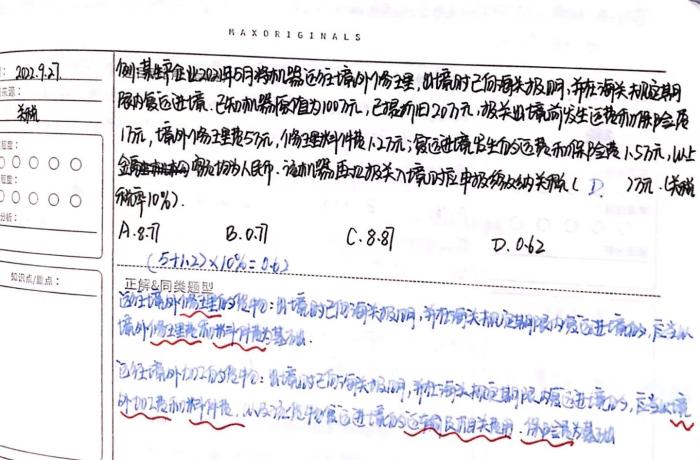 MAXORIGINALS
: 2022.9.27
来源:
关税
程度:
程度:
分析:
知识点/重点:
例:某生产企业2021年5月将机器运往境外修理,出境时已向海关报明,并在海关规定期
限内复运进境.已知机器原值为100万元,已提折旧20万元,报关出境前发生运费和保险费
1万元,境外修理费5万元,修理料件费1.2万元;复运进境发生的运费和保险费1.5万元,以上
金额均为人民币.该机器再次报关入境时应申报缴纳关税( D. )万元.(关税
税率10%).
A.8.77 B.0.77 C.8.87 D.0.62
(5+1.2)×10%=0.62
正解&同类题型
运往境外修理的货物:出境时已向海关报明,并在海关规定期限内复运进境的,应当以
境外修理费和料件费为基础.
运往境外加工的货物:出境时已向海关报明,并在海关规定期限内复运进境的,应当以境
外加工费和料件费,以及该货物复运进境的运输及其相关费用.保险费为基础